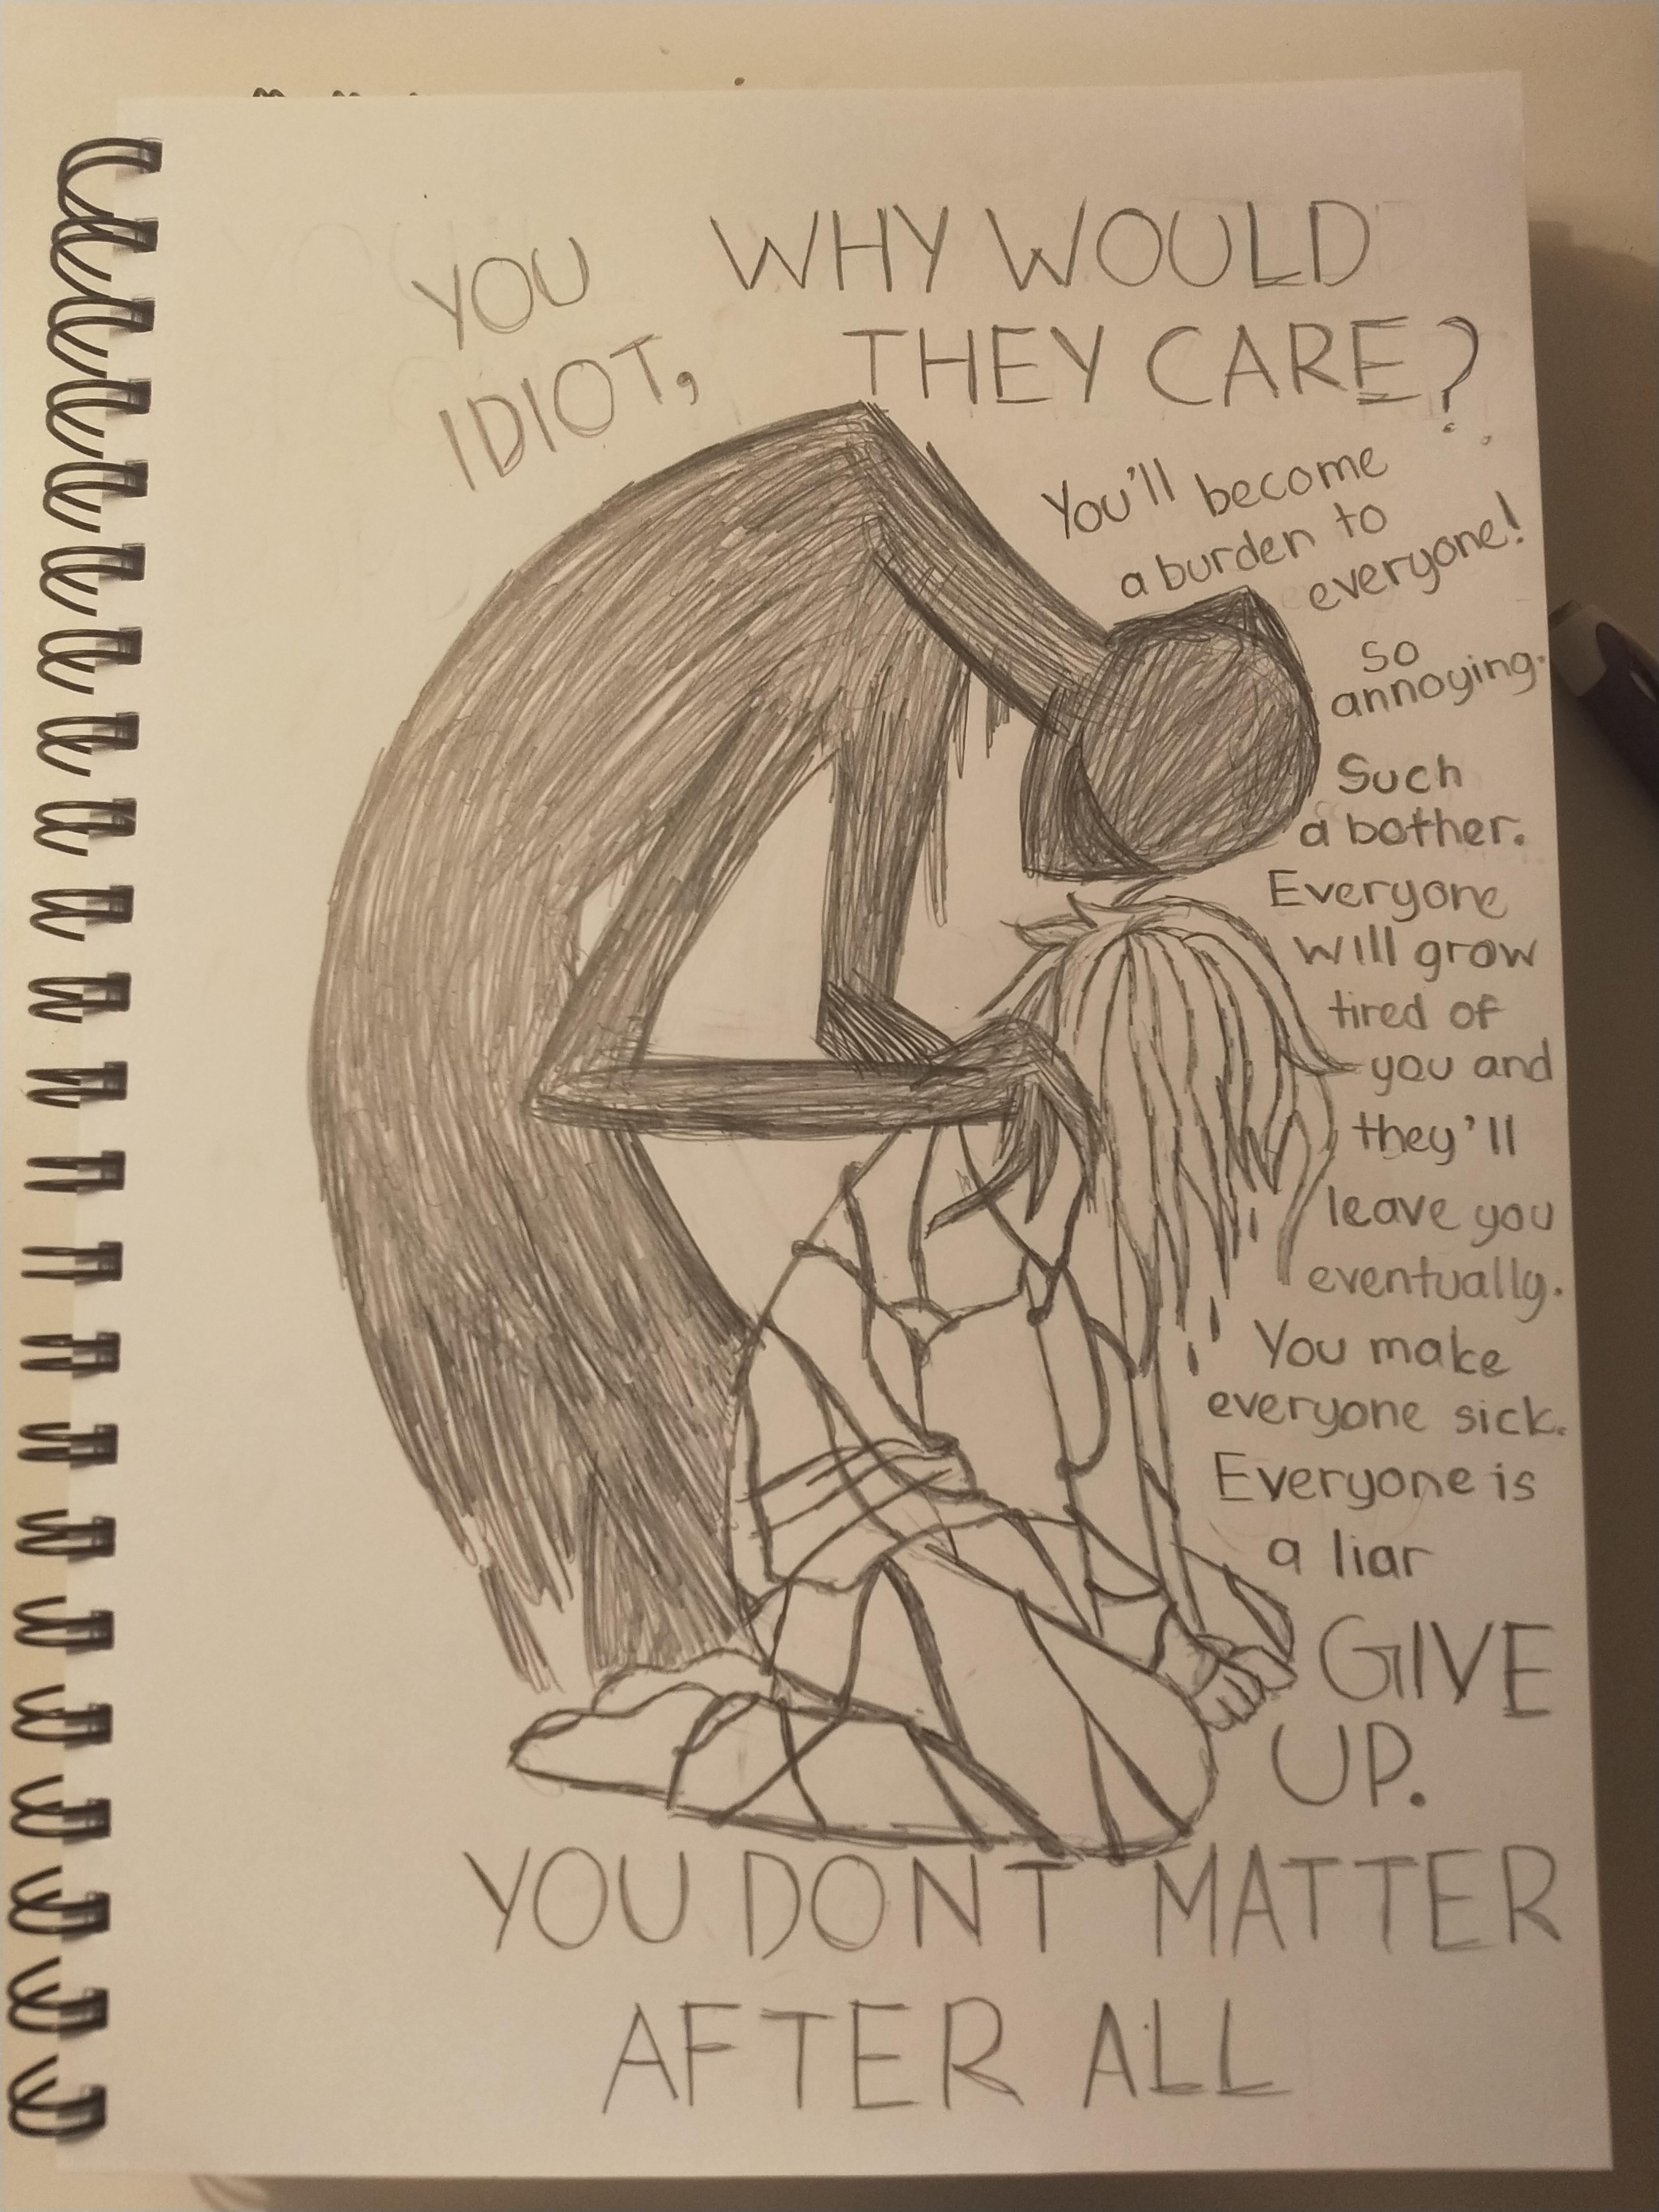 YOU
IDIOT,
WHY WOULD
THEY CARE?
You'll become
a burden to
everyone!
so
annoying.
Such
a bother.
Everyone
will grow
tired of
you and
they'll
leave you
eventually.
You make
everyone sick.
Everyone is
a liar
GIVE
UP.
YOU DONT MATTER
AFTER ALL